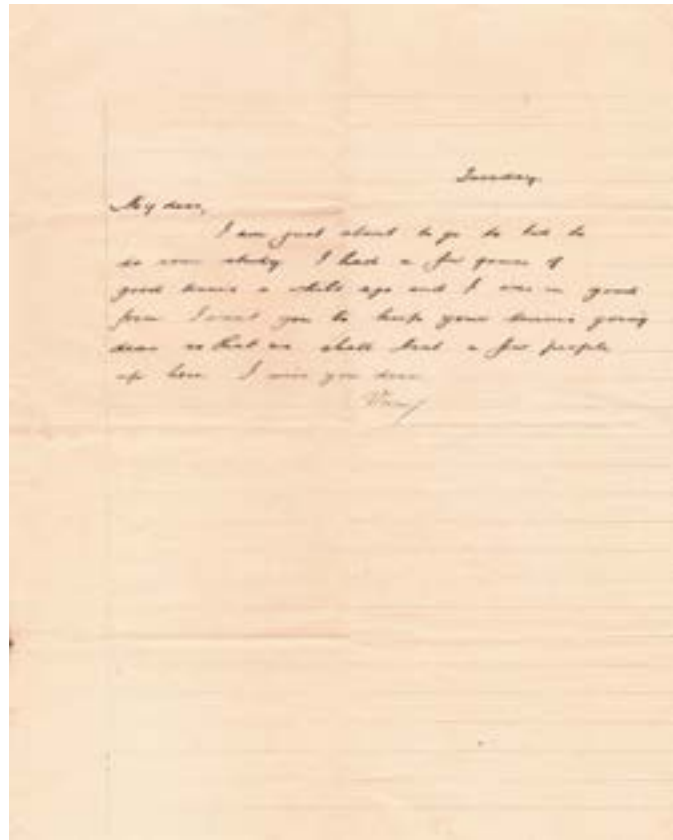 Tuesday.
My dear,
I am just about to go to bed to
do some study. I had a few games of
good tennis a while ago and I was in good
form. I want you to keep your tennis going
dear so that we shall beat a few people
up here. I miss you dear